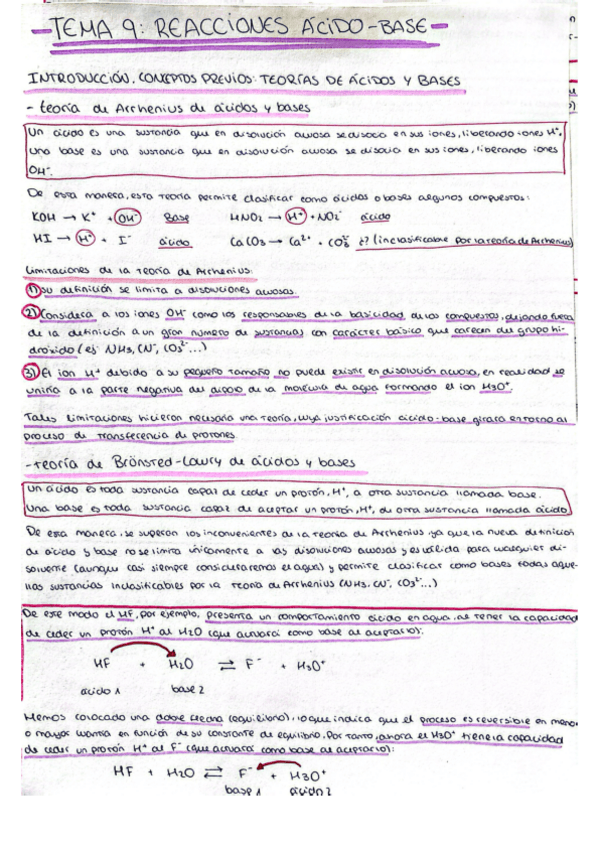 -TEMA 9: REACCIONES ÁCIDO-BASE-
INTRODUCCIÓN. CONCEPTOS PREVIOS: TEORÍAS DE ÁCIDOS Y BASES
- teoría de Arrhenius de ácidos y bases
Un ácido es una sustancia que en disolución acuosa se disocia en sus iones, liberando iones H⁺.
Una base es una sustancia que en disolución acuosa se disocia en sus iones, liberando iones
OH⁻.
De esta manera, esta teoría permite clasificar como ácidos o bases algunos compuestos:
KOH → K⁺ + OH⁻ Base HNO₂ → H⁺ + NO₂⁻ ácido
HI → H⁺ + I⁻ ácido CaCO₃ → Ca²⁺ + CO₃²⁻ ¿? (inclasificable por la teoría de Arrhenius)
Limitaciones de la teoría de Arrhenius:
1) Su definición se limita a disoluciones acuosas.
2) Considera a los iones OH⁻ como los responsables de la basicidad de los compuestos, dejando fuera
de la definición a un gran número de sustancias con carácter básico que carecen del grupo hi-
dróxido (ej NH₃, CN⁻, CO₃²⁻...)
3) El ion H⁺ debido a su pequeño tamaño no puede existir en disolución acuosa, en realidad se
uniría a la parte negativa del dipolo de la molécula de agua formando el ion H₃O⁺.
Tales limitaciones hicieron necesaria una teoría, cuya justificación ácido-base girara en torno al
proceso de transferencia de protones.
-teoría de Brönsted-Lowry de ácidos y bases
Un ácido es toda sustancia capaz de ceder un protón, H⁺, a otra sustancia llamada base.
Una base es toda sustancia capaz de aceptar un protón, H⁺, de otra sustancia llamada ácido
De esa manera, se superan los inconvenientes de la teoría de Arrhenius, ya que la nueva definición
de ácido y base no se limita únicamente a las disoluciones acuosas y es válida para cualquier di-
solvente (aunque casi siempre consideraremos el agua) y permite clasificar como bases todas aque-
llas sustancias inclasificables por la teoría de Arrhenius (NH₃, CN⁻, CO₃²⁻...)
De este modo el HF, por ejemplo, presenta un comportamiento ácido en agua, al tener la capacidad
de ceder un protón H⁺ al H₂O (que actuará como base al aceptarlo):
HF + H₂O ⇄ F⁻ + H₃O⁺
ácido 1 base 2
Hemos colocado una doble flecha (equilibrio), lo que indica que el proceso es reversible en menor
o mayor cuantía en función de su constante de equilibrio. Por tanto, ahora el H₃O⁺ tiene la capacidad
de ceder un protón H⁺ al F⁻ (que actuará como base al aceptarlo):
HF + H₂O ⇄ F⁻ + H₃O⁺
base 1 ácido 2